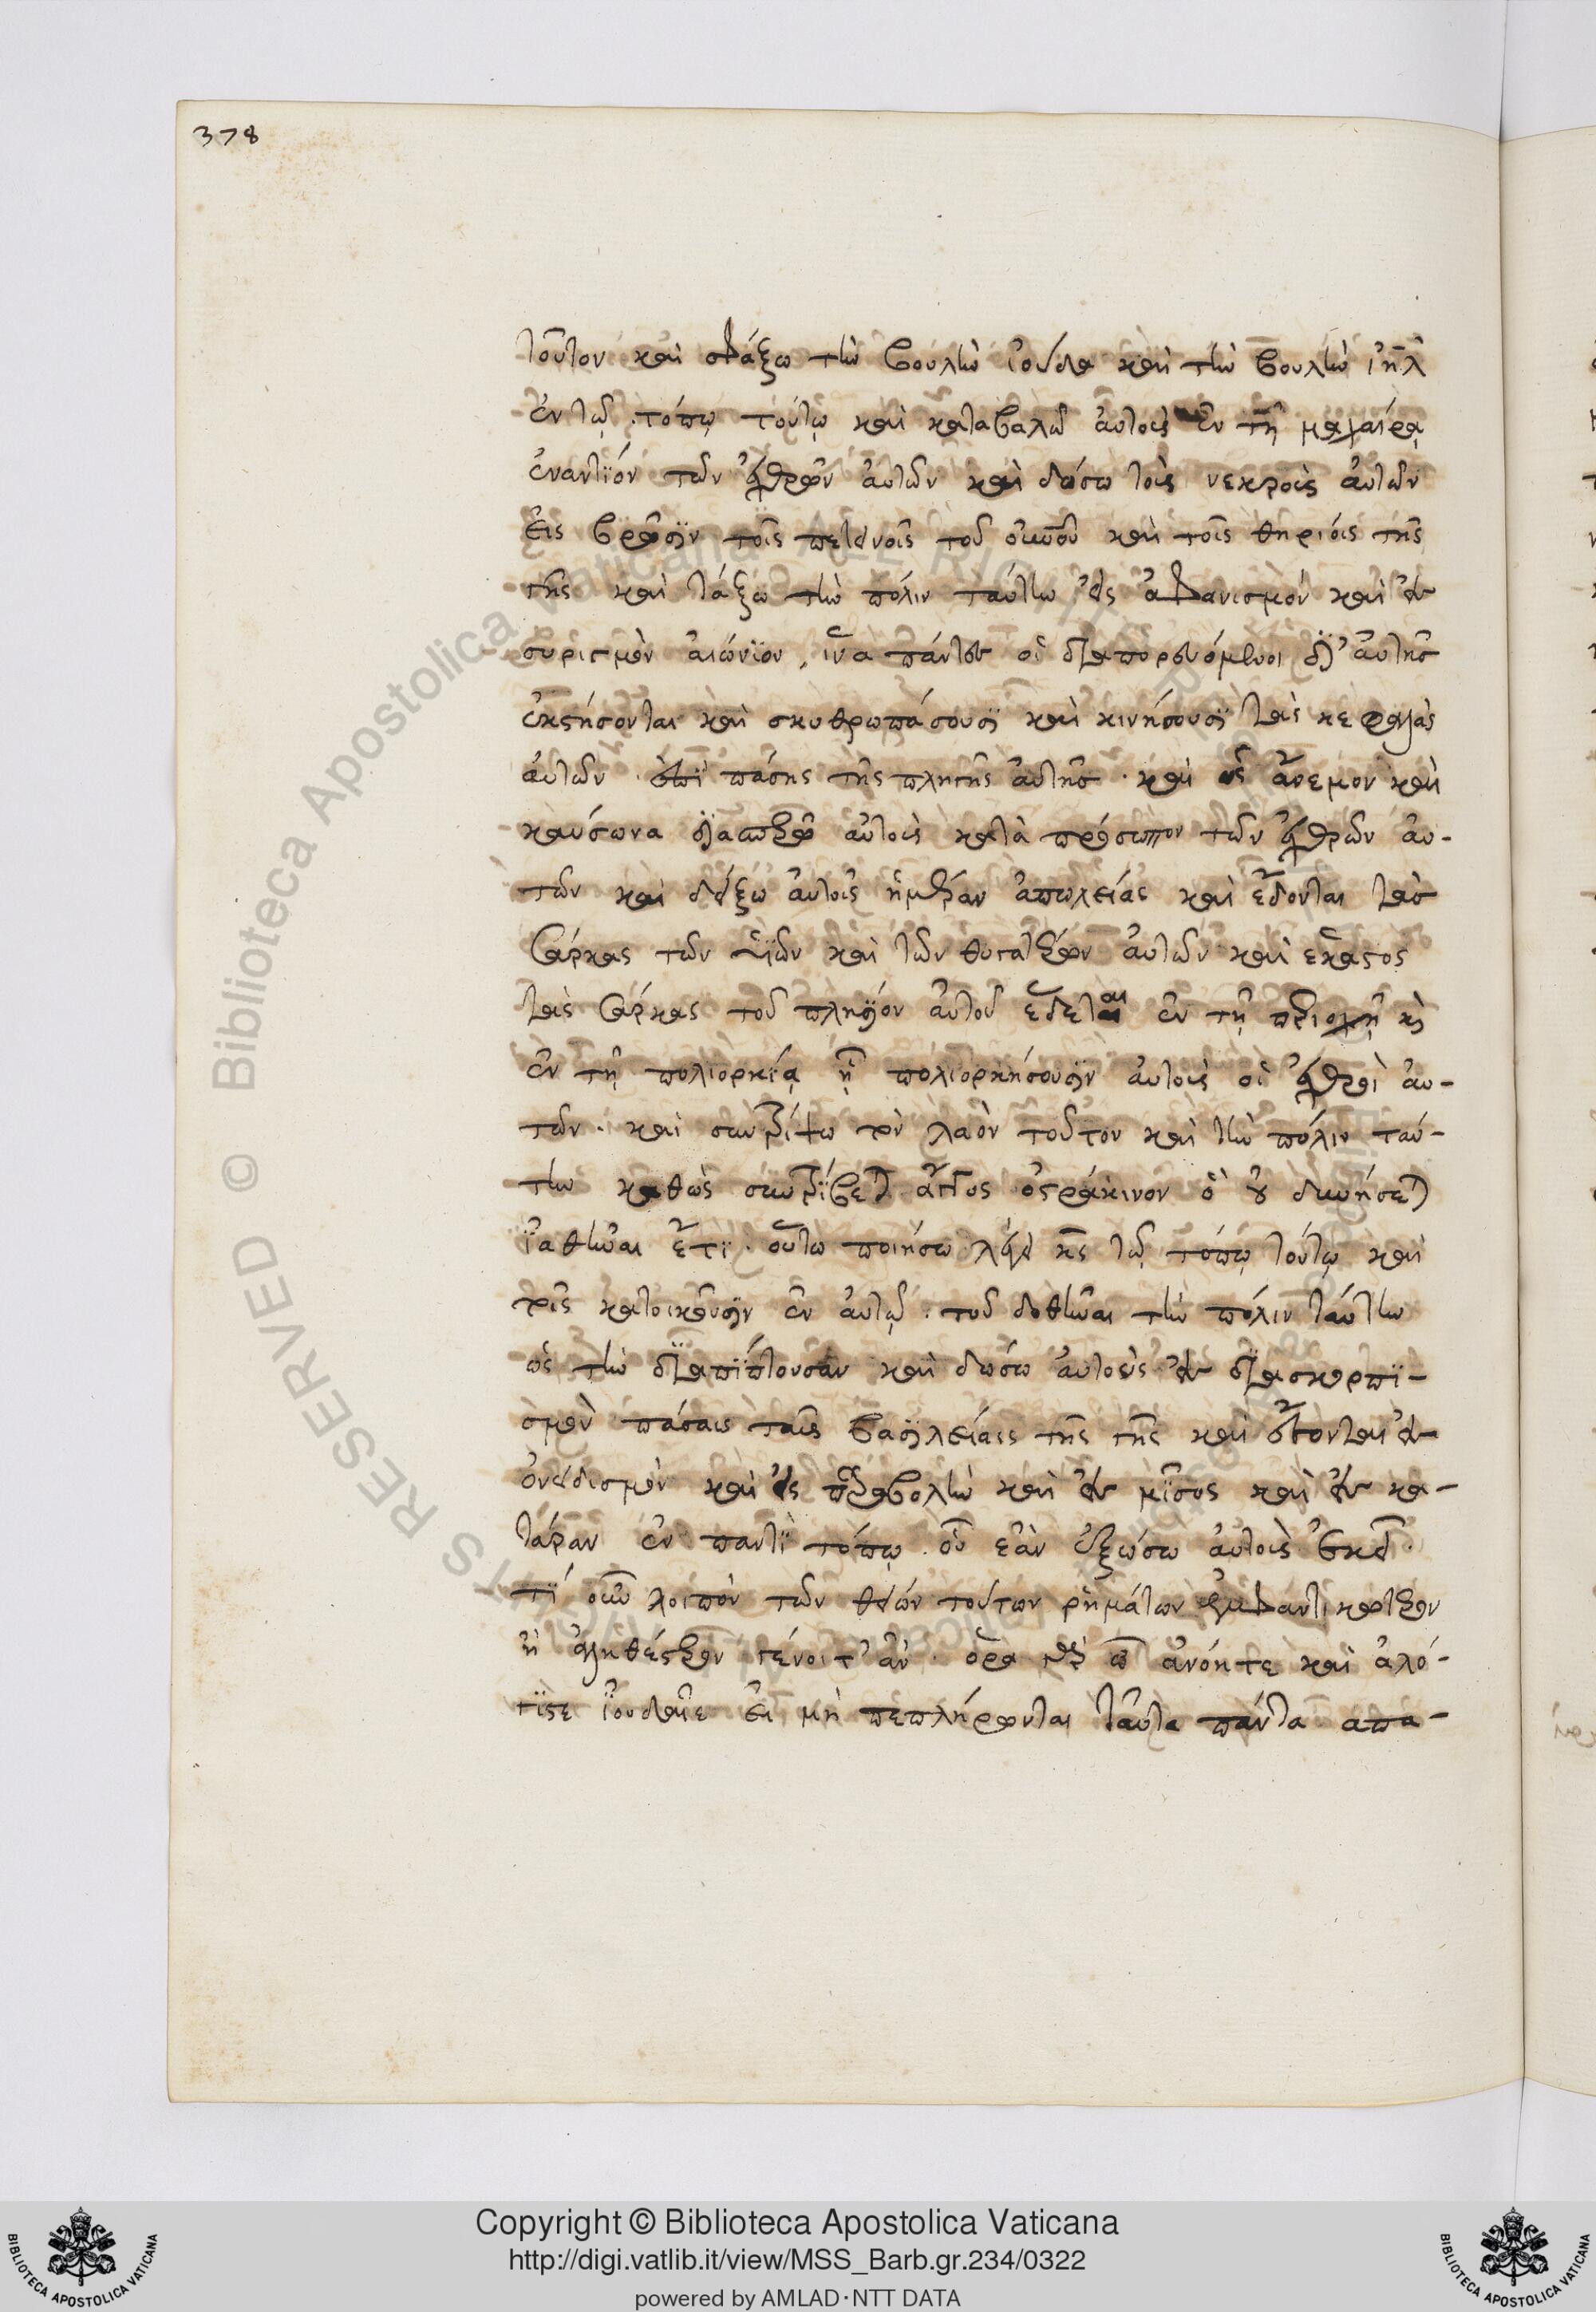 378
τοῦτον καὶ σφάξω τὴν βουλὴν ἰούδα καὶ τὴν βουλὴν ἰηλ
ἐν τῷ τόπῳ τούτῳ καὶ καταβαλῶ αὐτοὺς ἐν τῇ μαχαίρᾳ
ἐναντίον τῶν ἐχθρῶν αὐτῶν καὶ δώσω τοὺς νεκροὺς αὐτῶν
εἰς βρῶσιν τοῖς πετεινοῖς τοῦ οὐνοῦ καὶ τοῖς θηρίοις τῆς
γῆς καὶ τάξω τὴν πόλιν ταύτην εἰς ἀφανισμὸν καὶ εἰς
συριγμὸν αἰώνιον, ἵνα πάντες οἱ διαπορευόμενοι δι' αὐτῆς
ἐκστήσονται καὶ σκυθρωπάσουσι καὶ κινήσουσι τὰς κεφαλὰς
αὐτῶν ἐπὶ πάσης τῆς πληγῆς αὐτῆς. καὶ ὡς ἄνεμον καὶ
καύσωνα διασπερῶ αὐτοὺς κατὰ πρόσωπον τῶν ἐχθρῶν αὐ-
τῶν καὶ δείξω αὐτοῖς ἡμέραν ἀπωλείας καὶ ἔδονται τὰς
σάρκας τῶν υἱῶν καὶ τῶν θυγατέρων αὐτῶν καὶ ἕκαστος
τὰς σάρκας τοῦ πλησίον αὐτοῦ ἔδεται ἐν τῇ περιοχῇ κὶ
ἐν τῇ πολιορκίᾳ ᾗ πολιορκήσουσιν αὐτοὺς οἱ ἐχθροὶ αὐ-
τῶν. καὶ συντρίψω τὸν λαὸν τοῦτον καὶ τὴν πόλιν ταύ-
την καθὼς συντρίβεται ἄγγος ὀστράκινον ὃ οὐ δυνήσεται
ἰαθῆναι ἔτι. οὕτω ποιήσω λέγει κς τῷ τόπῳ τούτῳ καὶ
τοῖς κατοικοῦσιν ἐν αὐτῷ. τοῦ δοθῆναι τὴν πόλιν ταύτην
ὡς τὴν διαπίπτουσαν καὶ δώσω αὐτοὺς εἰς διασκορπι-
σμὸν πάσαις ταῖς βασιλείαις τῆς γῆς καὶ ἔσονται εἰς
ὀνειδισμὸν καὶ εἰς παραβολὴν καὶ εἰς μῖσος καὶ εἰς κα-
τάραν ἐν παντὶ τόπῳ οὗ ἐὰν ἐξώσω αὐτοὺς ἐκεῖ.
τί οὖν λοιπὸν τῶν θείων τούτων ῥημάτων ἐμφαντικώτερον
ἢ ἀληθέστερον γένοιτ' ἄν. ὅρα γὰρ ὦ ἀνόητε καὶ ἀλό-
γιστε ἰουδαῖε εἰ μὴ πεπλήρωνται ταῦτα πάντα ἁπα-
Copyright © Biblioteca Apostolica Vaticana
http://digi.vatlib.it/view/MSS_Barb.gr.234/0322
powered by AMLAD·NTT DATA